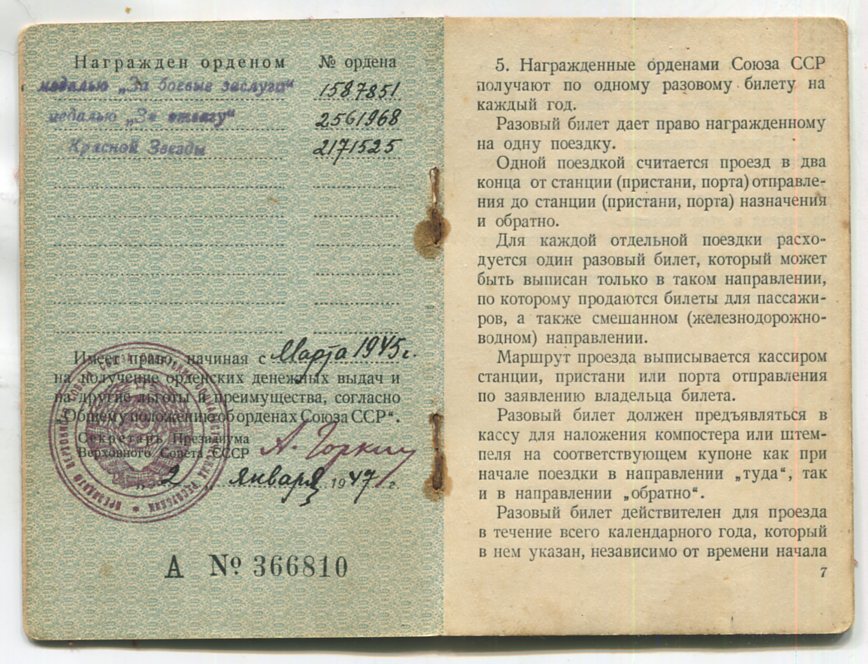 Награжден орденом № ордена
медалью „За боевые заслуги“ 1587851
медалью „За отвагу“ 2561968
Красной Звезды 2171525
Имеет право, начиная с Марта 1945 г.
на получение орденских денежных выдач и
на другие льготы и преимущества, согласно
„Общему положению об орденах Союза ССР“.
Секретарь Президиума
Верховного Совета СССР А. Горкин
2 января 1947 г.
А № 366810
5. Награжденные орденами Союза ССР
получают по одному разовому билету на
каждый год.
Разовый билет дает право награжденному
на одну поездку.
Одной поездкой считается проезд в два
конца от станции (пристани, порта) отправле-
ния до станции (пристани, порта) назначения
и обратно.
Для каждой отдельной поездки расхо-
дуется один разовый билет, который может
быть выписан только в таком направлении,
по которому продаются билеты для пассажи-
ров, а также смешанном (железнодорожно-
водном) направлении.
Маршрут проезда выписывается кассиром
станции, пристани или порта отправления
по заявлению владельца билета.
Разовый билет должен предъявляться в
кассу для наложения компостера или штем-
пеля на соответствующем купоне как при
начале поездки в направлении „туда“, так
и в направлении „обратно“.
Разовый билет действителен для проезда
в течение всего календарного года, который
в нем указан, независимо от времени начала
7